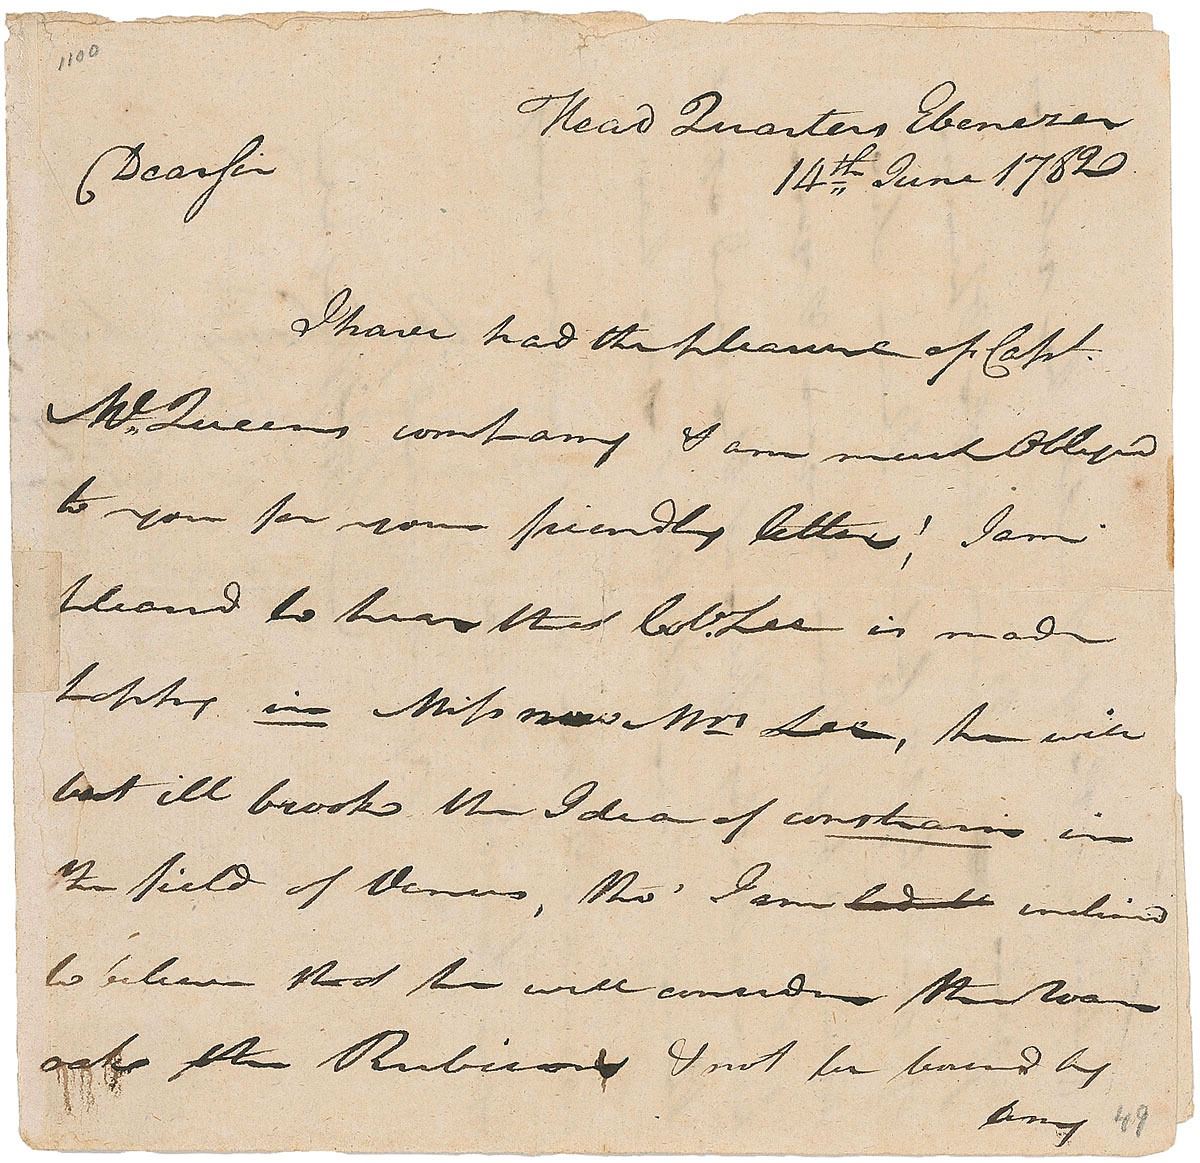 1100
Head Quarters Ebenezer
14th June 1782
Dear Sir
I have had the pleasure of Capt.
Mc. Queens company & am much Obliged
to you for your friendly letter! I am
pleased to hear that Col. Lee is made
happy in Miss now Mrs Lee, he will
but ill brook the Idea of constrain in
the field of Venus, tho' I am led to inclined
to believe that he will consider the
the Rubicon & not be bound by
any
49